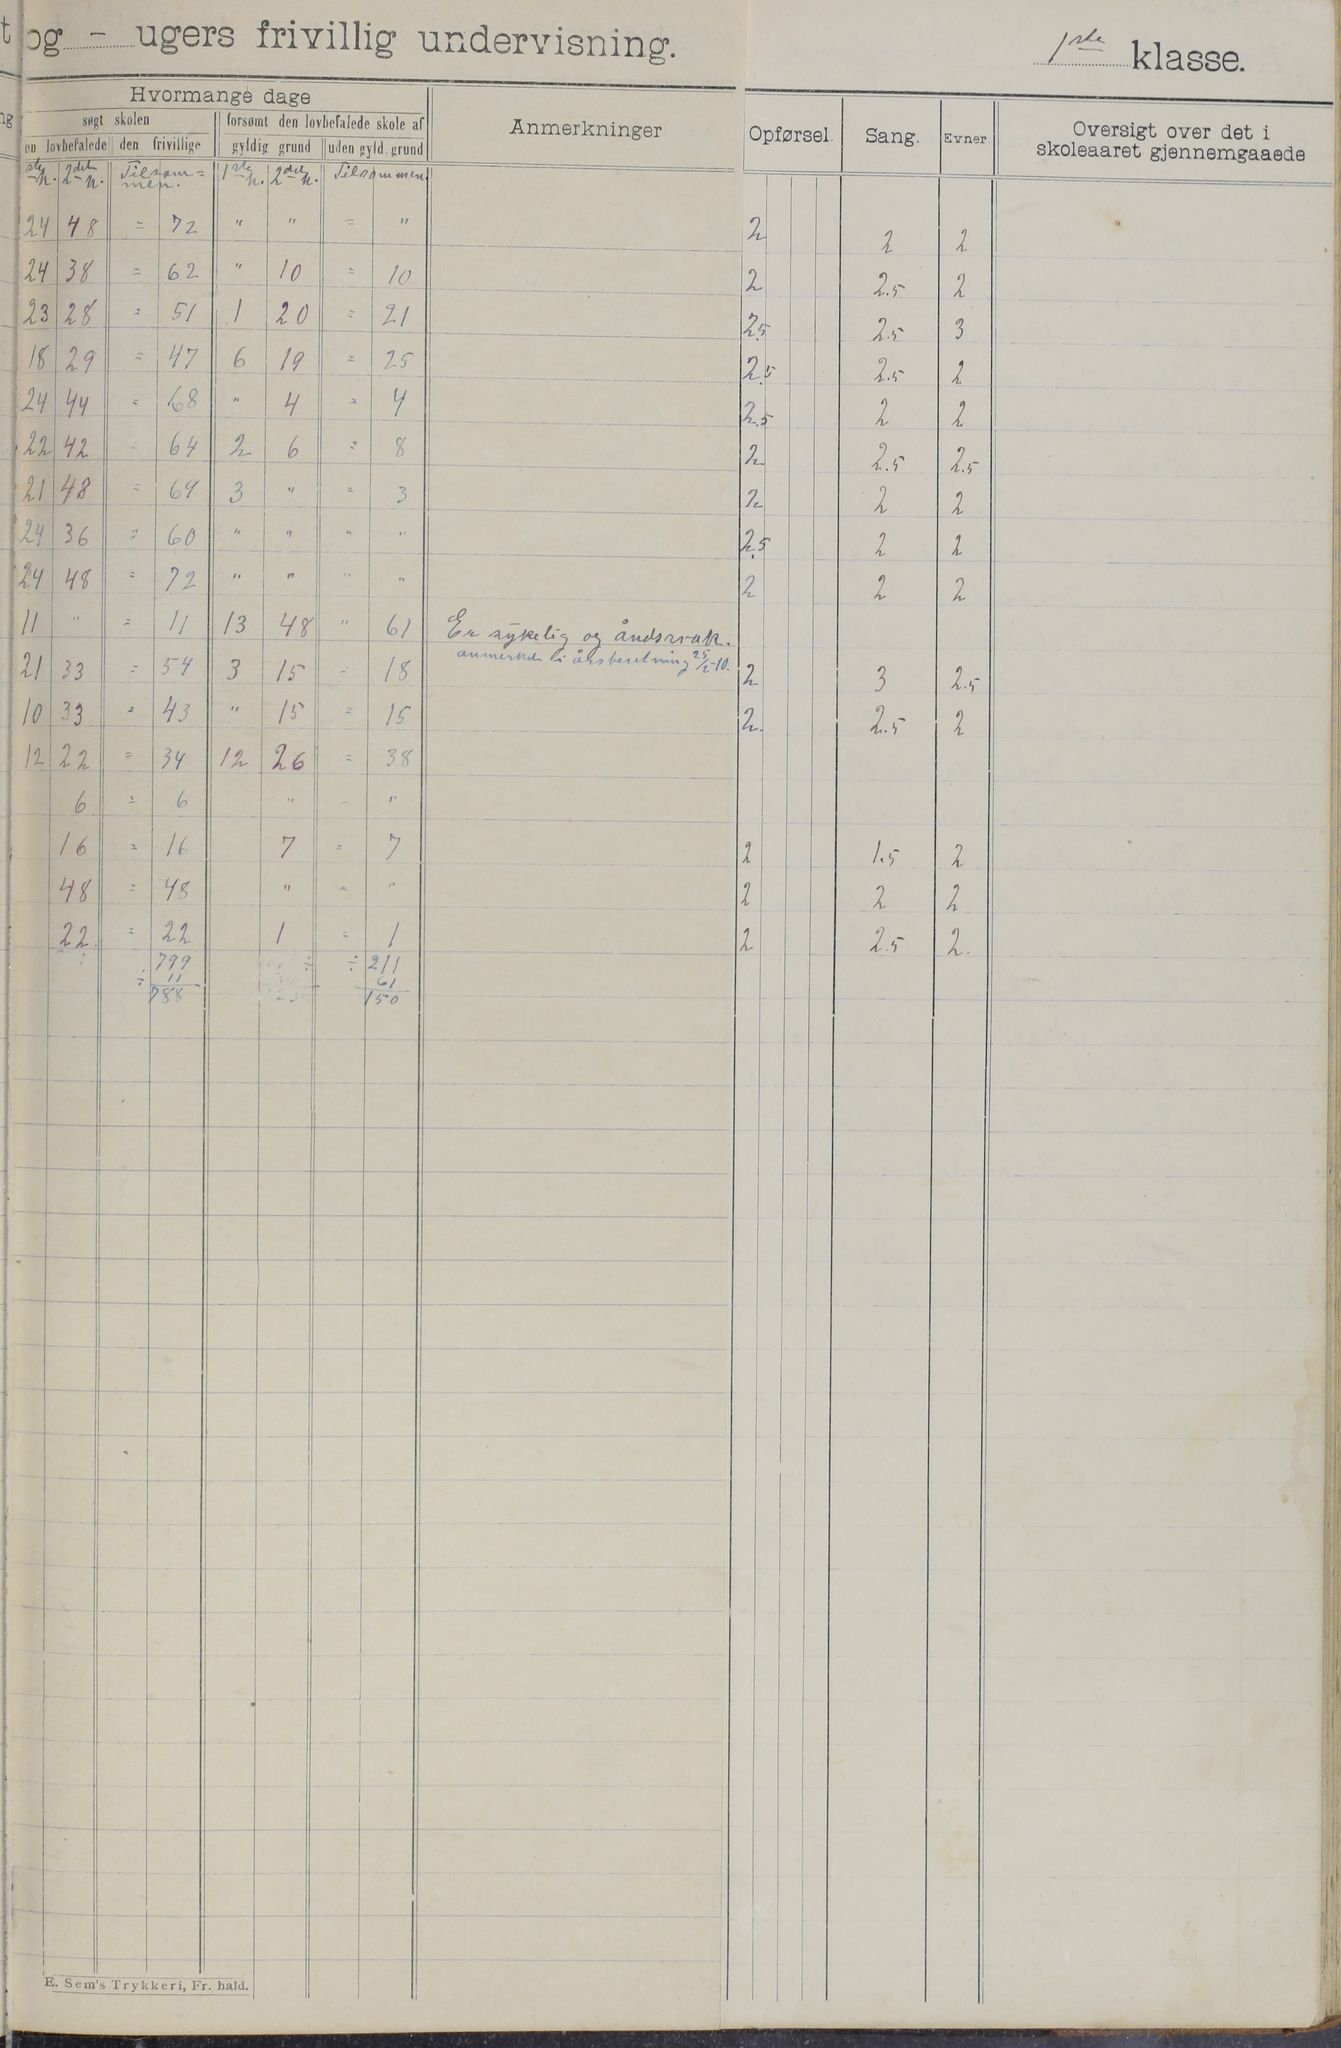 og - ugers frivillig undervisning. 1ste klasse.
Hvormange dage
søgt skolen forsømt den lovbefalede skole af Anmerkninger Opførsel. Sang. Evner. Oversigt over det i skoleaaret gjennemgaaede
en lovbefalede den frivillige gyldig grund uden gyld. grund
ste h. 2det h. Tilsammen. 1ste h. 2det h. Tilsammen
24 48 = 72 " " = " 2 2 2
24 38 = 62 " 10 = 10 2 2.5 2
23 28 = 51 1 20 = 21 2.5 2.5 3
18 29 = 47 6 19 = 25 2.5 2.5 2
24 44 = 68 " 4 = 4 2.5 2 2
22 42 = 64 2 6 = 8 2 2.5 2.5
21 48 = 69 3 " = 3 2 2 2
24 36 = 60 " " " " 2.5 2 2
24 48 = 72 " " " " 2 2 2
11 " = 11 13 48 " 61 Er sykelig og åndssvak.
anmerket i årsberetning 25/2-10.
21 33 = 54 3 15 - 18 2 3 2.5
10 33 = 43 " 15 = 15 2. 2.5 2
12 22 = 34 12 26 = 38
6 = 6 " - "
16 = 16 7 = 7 2 1.5 2
48 = 48 " = " 2 2 2
22 = 22 1 = 1 2 2.5 2.
799 ÷ 211
÷ 11 61
788 150
E. Sem's Trykkeri, Fr. hald.